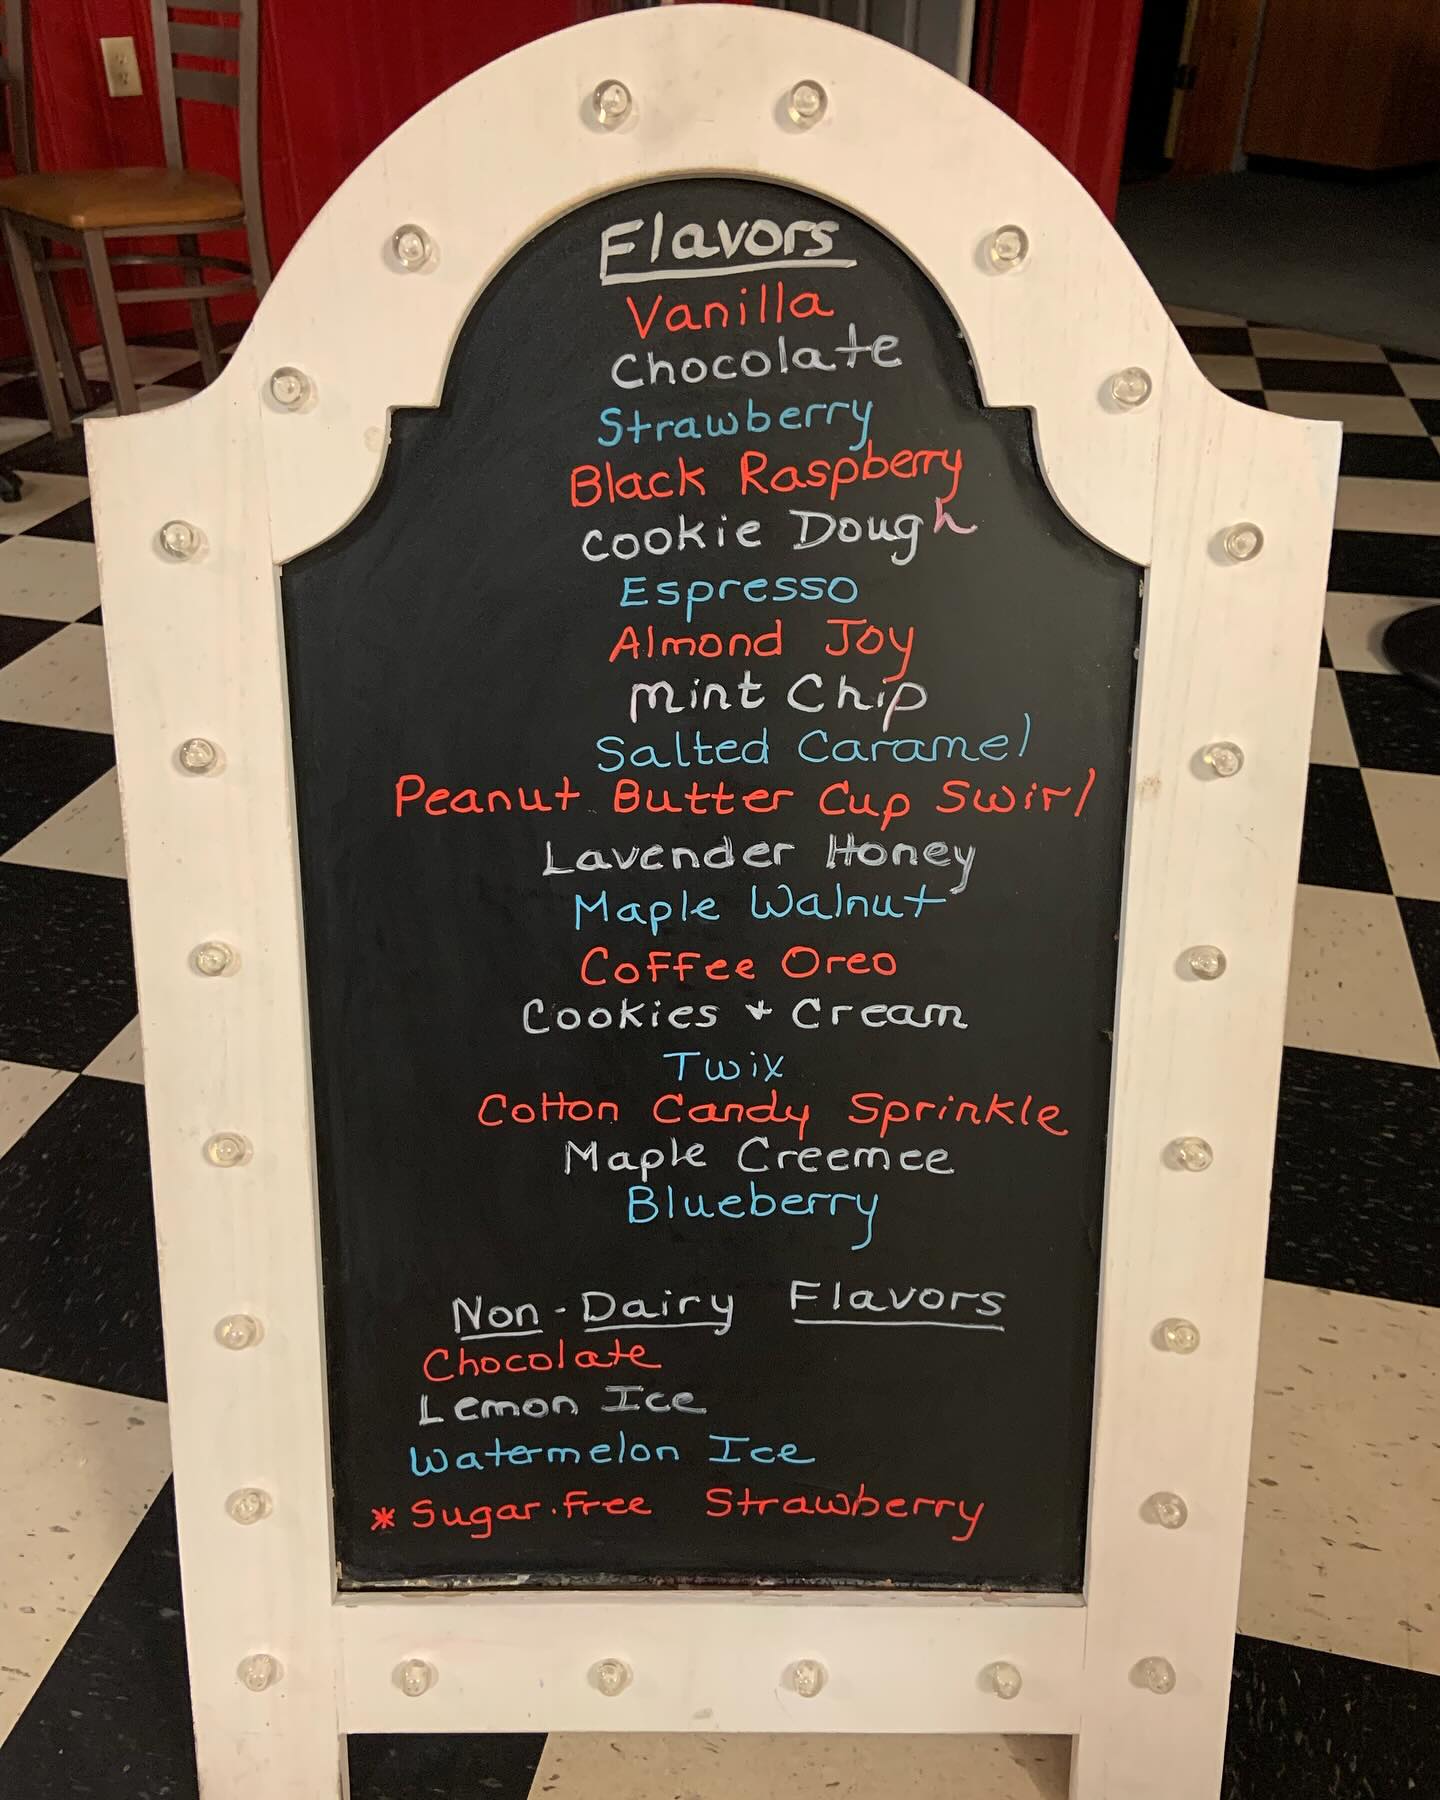 Flavors
Vanilla
Chocolate
Strawberry
Black Raspberry
Cookie Dough
Espresso
Almond Joy
Mint Chip
Salted Caramel
Peanut Butter Cup Swirl
Lavender Honey
Maple Walnut
Coffee Oreo
Cookies + Cream
Twix
Cotton Candy Sprinkle
Maple Creemee
Blueberry
Non-Dairy Flavors
Chocolate
Lemon Ice
Watermelon Ice
* Sugar.free Strawberry